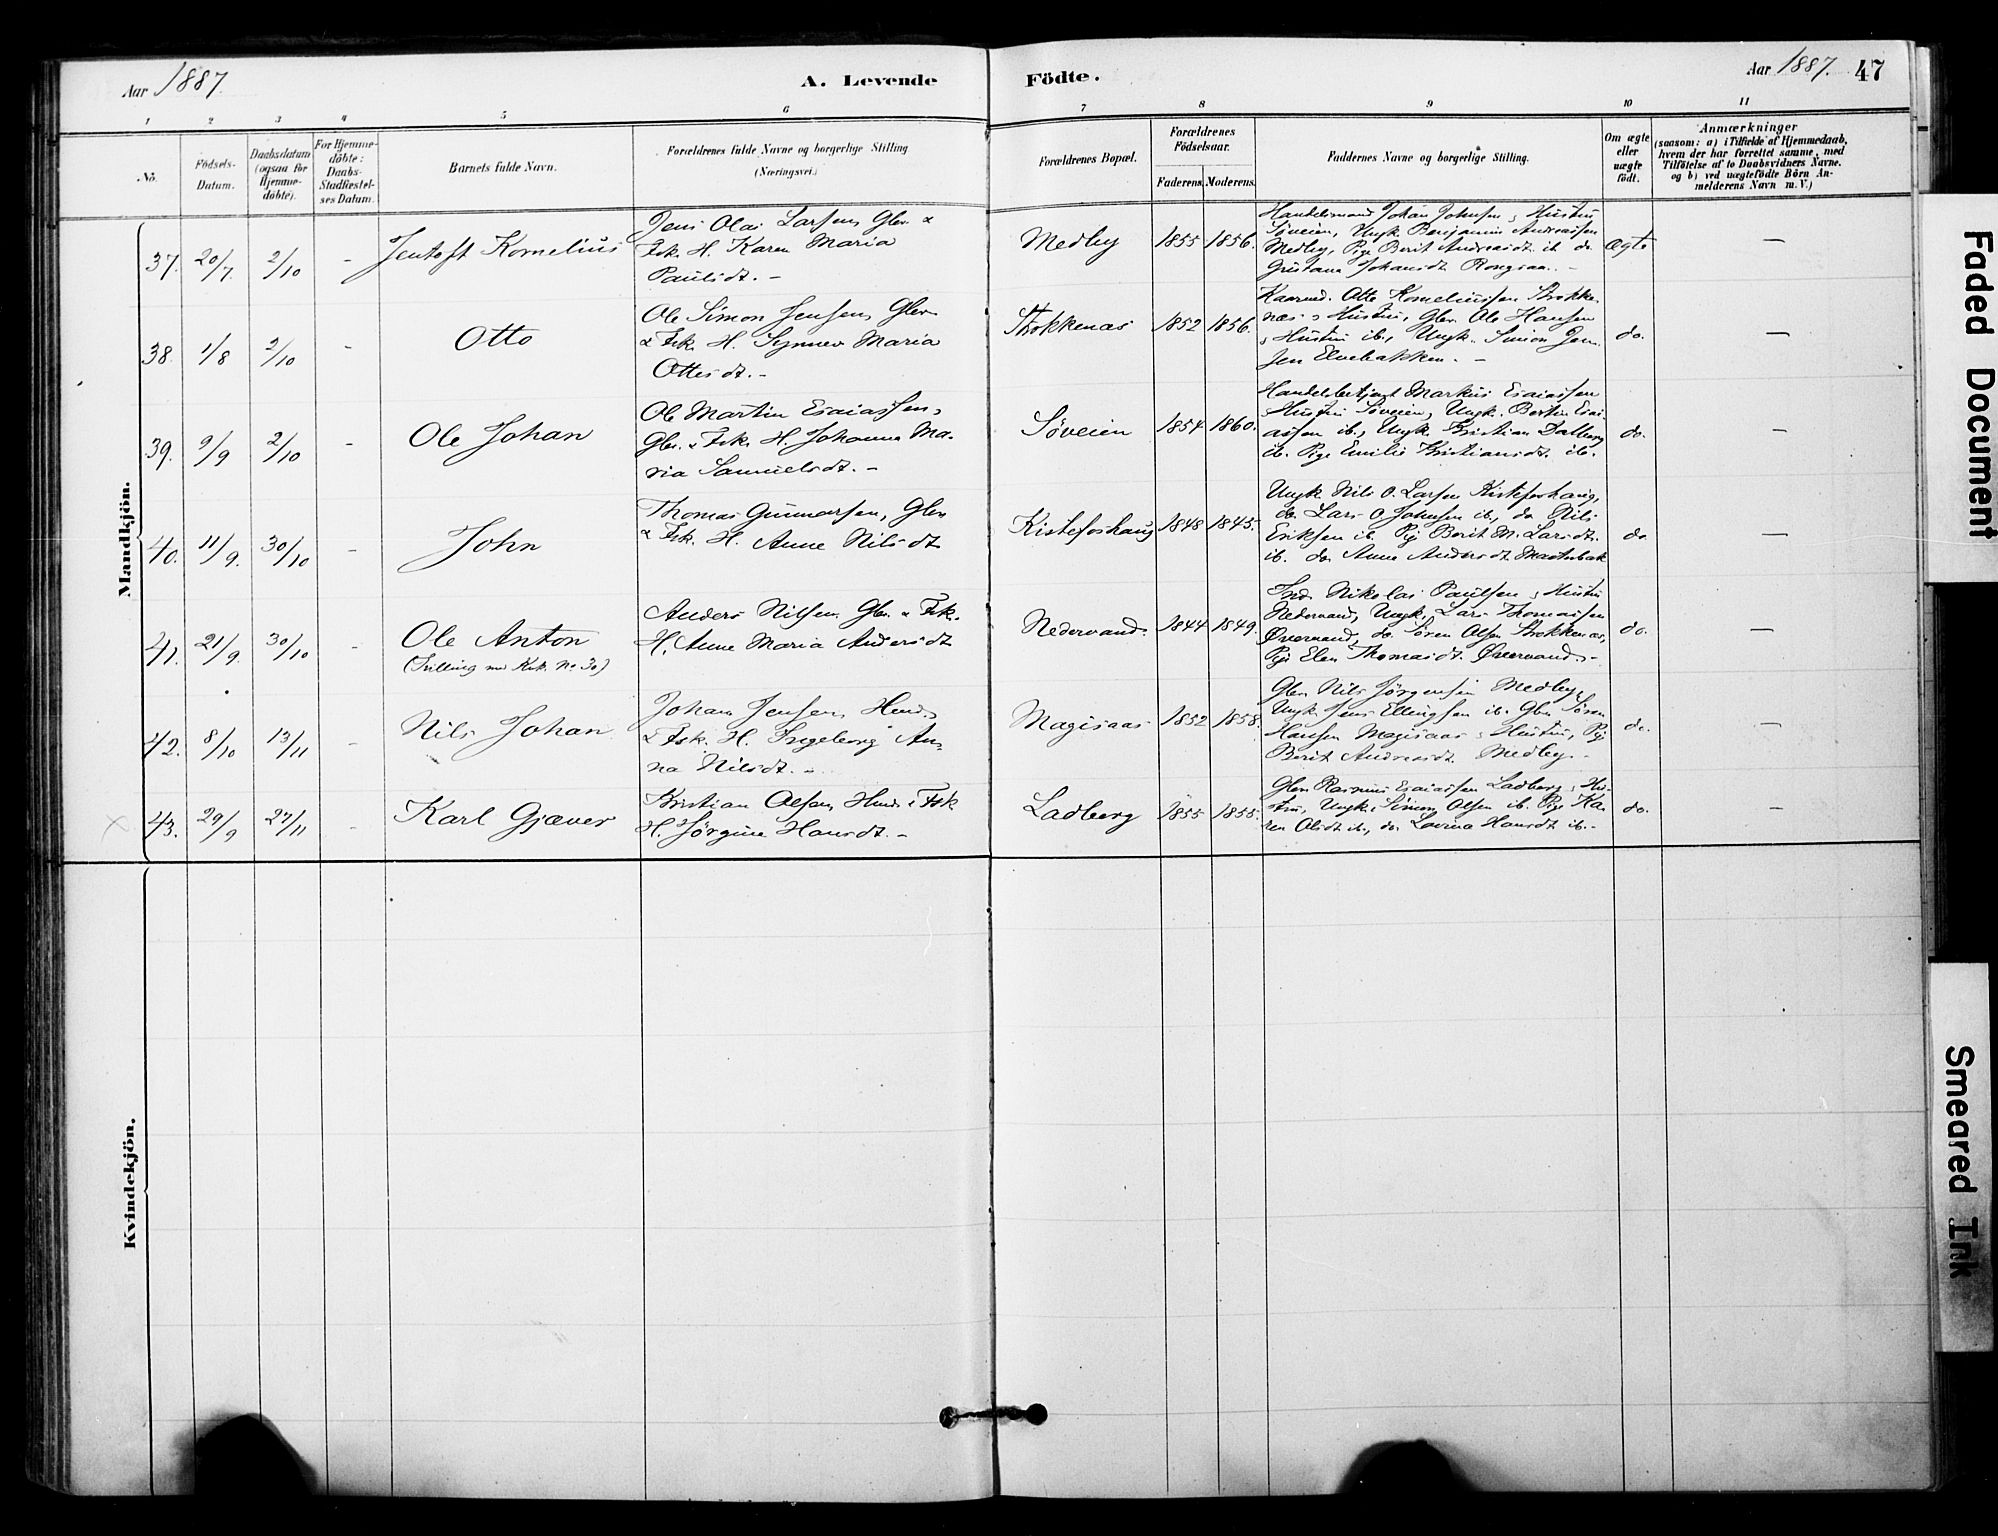 Aar 1887.
A. Levende
Födte.
Aar 1887. 47
1 2 3 4 5 6 7 8 9 10 11
No.
Födsels-
Datum.
Daabsdatum
(ogsaa for
Hjemme-
döbte).
For Hjemme-
döbte:
Daabs-
Stadfæstel-
ses Datum.
Barnets fulde Navn.
Forældrenes fulde Navne og borgerlige Stilling
(Næringsvei.)
Forældrenes Bopæl.
Forældrenes
Födselsaar.
Faderens. Moderens.
Faddernes Navne og borgerlige Stilling.
Om ægte
eller
uægte
födt.
Anmærkninger
(saasom: a) i Tilfælde af Hjemmedaab,
hvem der har forrettet samme, med
Tilföielse af to Daabsvidners Navne.
og b) ved uægtefödte Börn An-
melderens Navn m. V.)
Mandkjön.
37. 20/7. 2/10 - Jentoft Kornelius
Jens Olai Larsen, Gbr. &
Fsk. H. Karen Maria
Paulsdt. -
Medby 1855 1856.
Handelsmand Johan Johnsen & Hustru
Søveien, Ungk. Benjamin Andreassen
Medby, Pige Berit Andreasdt. ib. do.
Johansdt.
Ægte -
38. 1/8 2/10 - Otto
Ole Simon Jensen, Gbr.
& Fsk. H. Synnev Maria
Ottesdt. -
Strokkenæs 1852 1856.
Kaarmd. Otto Korneliussen Strokke-
næs & Hustru, Gbr. Ole Hansen
& Hustru ib., Ungk. Simon Jen-
sen Elvebakken. -
do. -
39. 9/9 2/10 - Ole Johan
Ole Martin Esaiassen,
Gbr. & Fsk. H. Johanna Ma-
ria Samuelsdt. -
Søveien 1854 1860.
Handelsbetjent Markus Esaiassen
& Hustru Søveien, Ungk. Bertin Esai-
assen ib., Ungk. Kristian Dalberg
ib. Pige Emilie Kristiansdt. ib.
do. -
40. 11/9. 30/10 - John
Thomas Gunnarsen, Gbr.
& Fsk. H. Anne Nilsdt
Kistefoshaug 1848 1845.
Ungk. Nils O. Larsen Kistefoshaug,
do. Lars O. Johnsen ib., do Nils
Eriksen ib. Pig Berit M. Larsdt.
ib. do Anne Andersdt
do -
41. 21/9. 30/10 - Ole Anton
(Trilling m. Kvk. No 30)
Anders Nilsen, Gbr. & Fsk.
H. Anne Maria Andersdt
Nedervand. 1844 1849.
Ind. Nikolai Paulsen & Hustru
Nedervand, Ungk. Lars Thomassen
Øvervand, do. Søren Olsen Strokkenæs,
Pige Elen Thomasdt. Øvervand. -
do. -
42. 8/10 13/11 - Nils Johan
Johan Jensen, Husm.
& Fsk. H. Ingeborg An-
na Nilsdt. -
Magisaas 1852 1858.
Gbr. Nils Jørgensen Medby,
Ungk Jens Ellingsen ib. Gbr. Søren
Hansen Magisaas & Hustru, Pig
Berit Andreasdt. Medby. -
do. -
43. 29/9 27/11 - Karl Gjæver
Kristian Olsen, Husm. & Fsk
H. Jørgine Hansdt. -
Ladberg 1855 1855.
Gbr. Rasmus Esaiassen Ladberg & Hu-
stru, Ungk. Simon Olsen ib. Pige Ka-
ren Olsdt ib., do. Lavina Hansdt ib. -
do. -
Kvindekjön.
Faded Document
Smeared Ink